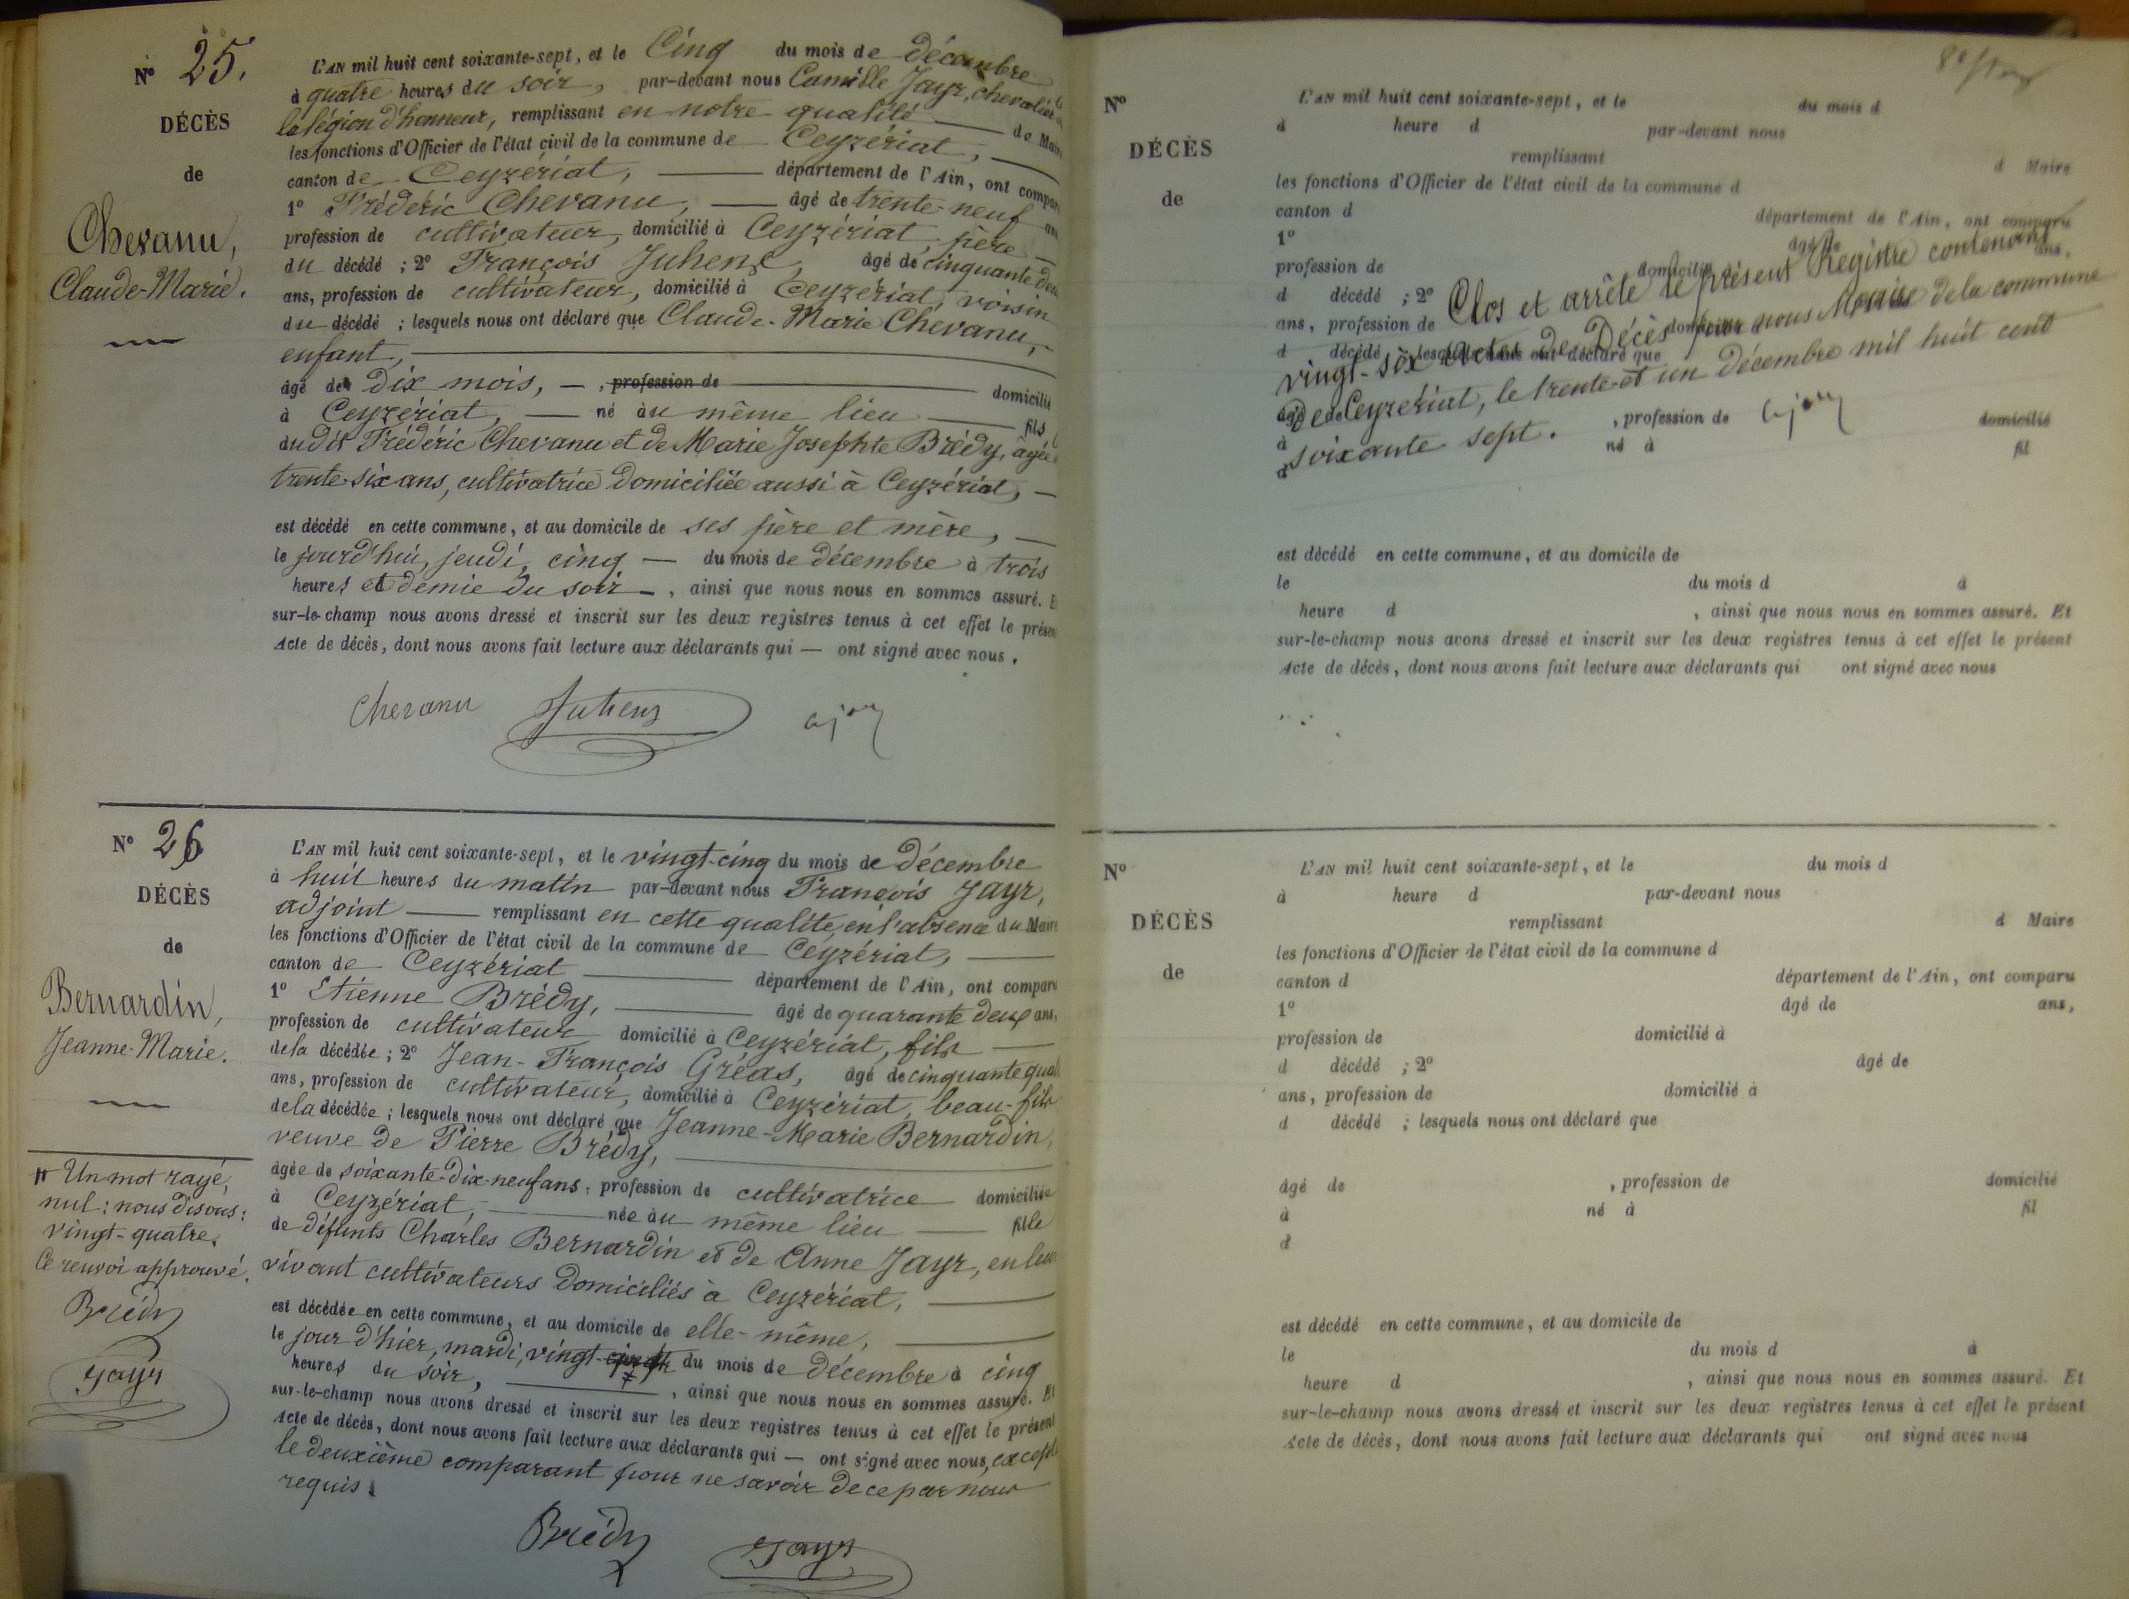 N° 25.
DÉCÈS
de
Chevanu,
Claude-Marie.
L'AN mil huit cent soixante-sept, et le Cinq du mois de décembre
à quatre heures du soir, par-devant nous Camille Jayr, chevalier
la légion d'honneur, remplissant en notre qualité de Maire
les fonctions d'Officier de l'état civil de la commune de Ceyzériat,
canton de Ceyzériat, département de l'Ain, ont compar
1° Frédéric Chevanu, âgé de trente-neuf ans
profession de cultivateur, domicilié à Ceyzériat, père
du décédé ; 2° François Juhenz, âgé de cinquante deux
ans, profession de cultivateur, domicilié à Ceyzériat, voisin
du décédé ; lesquels nous ont déclaré que Claude-Marie Chevanu,
enfant,
âgé de dix mois, , profession de domicilié
à Ceyzériat, né au même lieu fils
dudit Frédéric Chevanu et de Marie Josephte Brédy, âgée
trente-six ans, cultivatrice domiciliée aussi à Ceyzériat,
est décédé en cette commune, et au domicile de ses père et mère,
le jourd'hui, jeudi, cinq du mois de décembre à trois
heures et demie du soir, ainsi que nous nous en sommes assuré. E
sur-le-champ nous avons dressé et inscrit sur les deux registres tenus à cet effet le présen
Acte de décès, dont nous avons fait lecture aux déclarants qui — ont signé avec nous.
Chevanu Juhenz
N° 26
DÉCÈS
de
Bernardin,
Jeanne-Marie.
L'AN mil huit cent soixante-sept, et le vingt-cinq du mois de décembre
à huit heures du matin par-devant nous François Jayr,
adjoint remplissant en cette qualité, en l'absence du Maire
les fonctions d'Officier de l'état civil de la commune de Ceyzériat,
canton de Ceyzériat département de l'Ain, ont comparu
1° Etienne Brédy, âgé de quarante deux ans,
profession de cultivateur domicilié à Ceyzériat, fils
de la décédée ; 2° Jean-François Gréas, âgé de cinquante quat
ans, profession de cultivateur, domicilié à Ceyzériat, beau-fils
de la décédée ; lesquels nous ont déclaré que Jeanne-Marie Bernardin,
veuve de Pierre Brédy,
âgée de soixante-dix-neuf ans, profession de cultivatrice domiciliée
à Ceyzériat, née au même lieu fille
de défunts Charles Bernardin et de Anne Jayr, en leur
vivant cultivateurs domiciliés à Ceyzériat,
est décédée en cette commune, et au domicile de elle-même,
le jour d'hier, mardi, vingt-cinq # du mois de décembre à cinq
heures du soir, , ainsi que nous nous en sommes assuré. Et
sur-le-champ nous avons dressé et inscrit sur les deux registres tenus à cet effet le présent
Acte de décès, dont nous avons fait lecture aux déclarants qui — ont signé avec nous, excepté
le deuxième comparant pour ne savoir de ce par nous
requis.
Brédy Jayr
# Un mot rayé,
nul : nous disons :
vingt-quatre.
Ce renvoi approuvé.
Brédy
Jayr
N°
DÉCÈS
de
L'AN mil huit cent soixante-sept, et le du mois d
à heure d par-devant nous
remplissant d Maire
les fonctions d'Officier de l'état civil de la commune d
canton d département de l'Ain, ont comparu
1° âgé de ans,
profession de domicilié à
d décédé ; 2°
ans, profession de domicilié à
d décédé ; lesquels nous ont déclaré que
âgé de , profession de domicilié
à né à fil
d
Clos et arrêté le présent Registre contenant
vingt-six actes de Décès par nous Maire de la commune
De Ceyzériat, le trente-et un décembre mil huit cent
soixante sept.
est décédé en cette commune, et au domicile de
le du mois d à
heure d , ainsi que nous nous en sommes assuré. Et
sur-le-champ nous avons dressé et inscrit sur les deux registres tenus à cet effet le présent
Acte de décès, dont nous avons fait lecture aux déclarants qui ont signé avec nous
N°
DÉCÈS
de
L'AN mil huit cent soixante-sept, et le du mois d
à heure d par-devant nous
remplissant d Maire
les fonctions d'Officier de l'état civil de la commune d
canton d département de l'Ain, ont comparu
1° âgé de ans,
profession de domicilié à
d décédé ; 2° âgé de
ans, profession de domicilié à
d décédé ; lesquels nous ont déclaré que
âgé de , profession de domicilié
à né à fil
d
est décédé en cette commune, et au domicile de
le du mois d à
heure d , ainsi que nous nous en sommes assuré. Et
sur-le-champ nous avons dressé et inscrit sur les deux registres tenus à cet effet le présent
Acte de décès, dont nous avons fait lecture aux déclarants qui ont signé avec nous